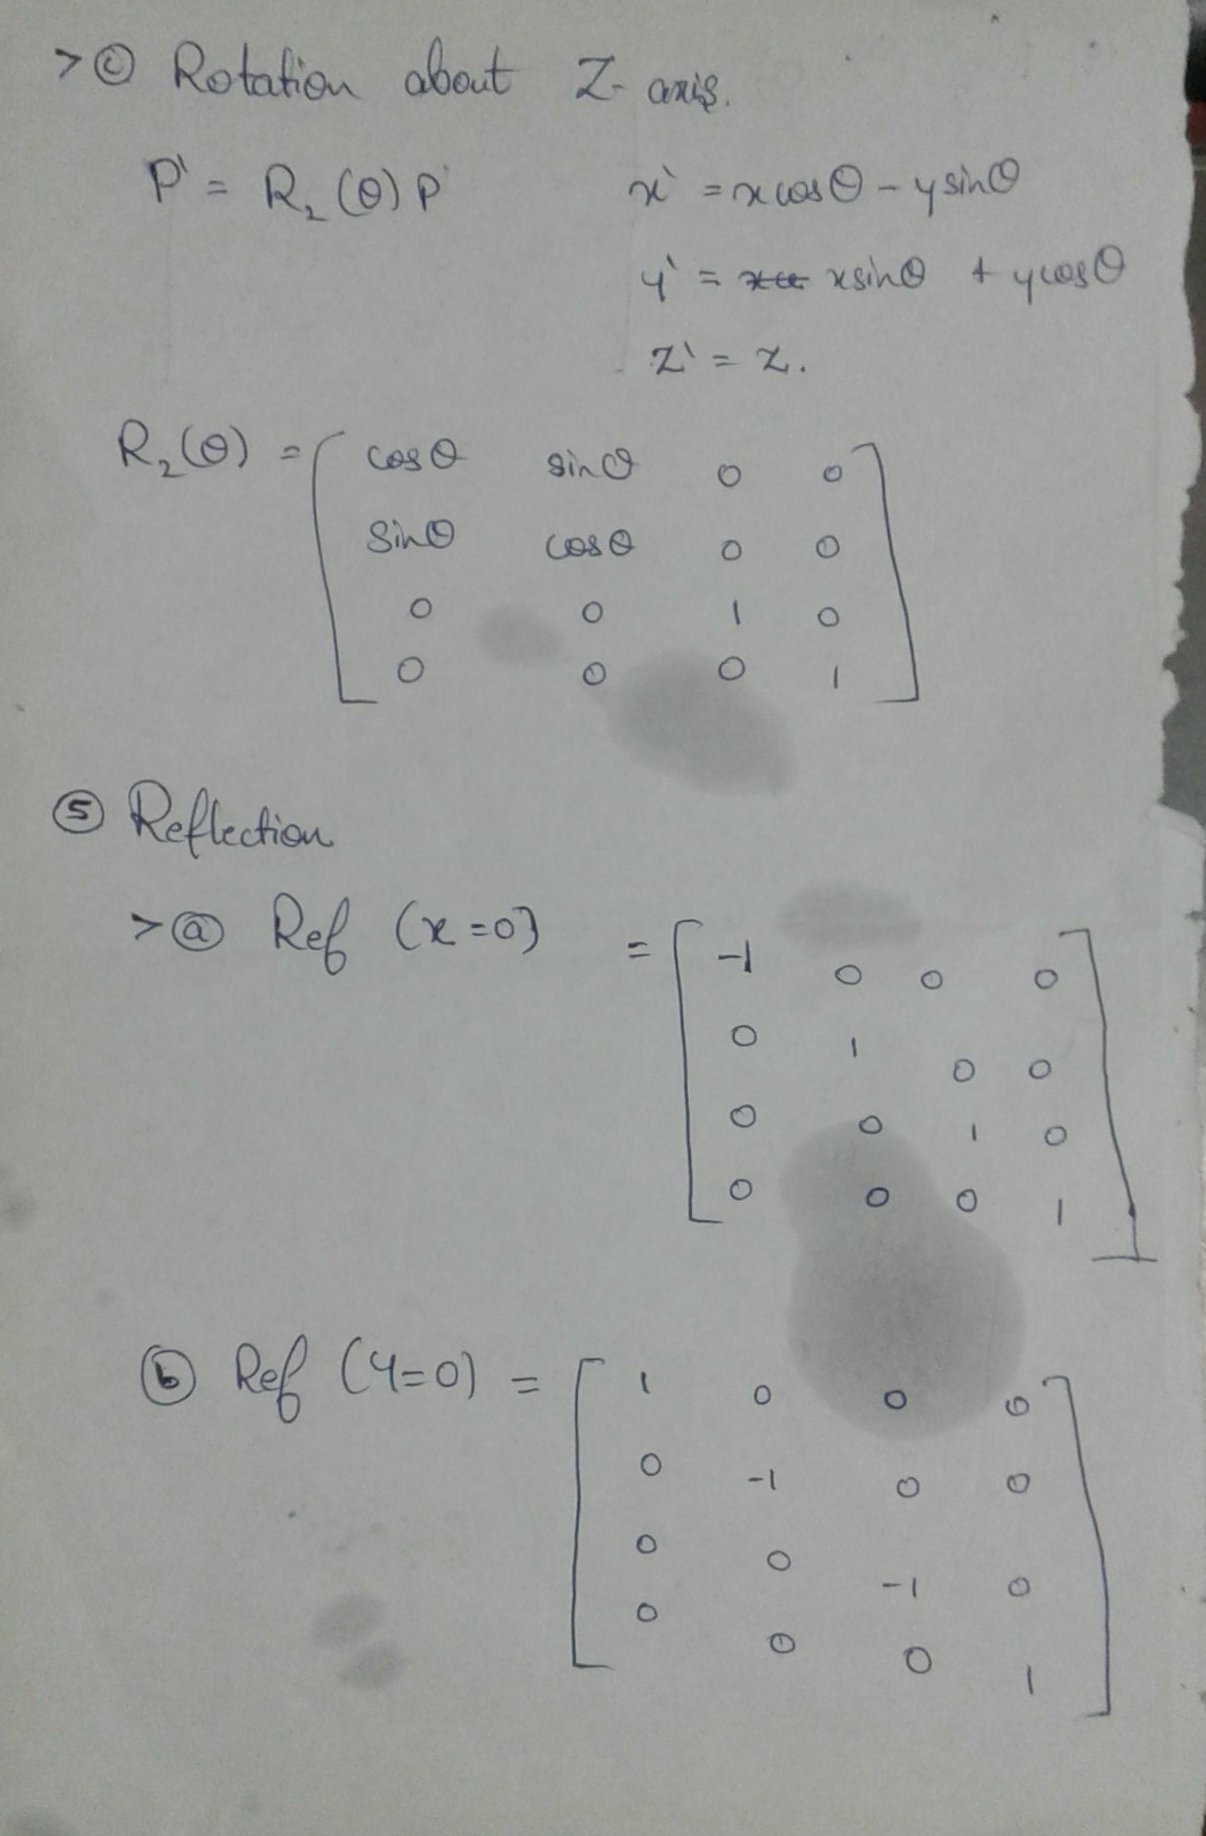 > ⓒ Rotation about Z-axis.
P' = R₂(θ)P
x' = xcosθ - ysinθ
y' = xsinθ + ycosθ
z' = z.
R₂(θ) = [ cosθ sinθ 0 0
sinθ cosθ 0 0
0 0 1 0
0 0 0 1 ]
⑤ Reflection
> ⓐ Ref (x=0) = [ -1 0 0 0
0 1 0 0
0 0 1 0
0 0 0 1 ]
ⓑ Ref (y=0) = [ 1 0 0 0
0 -1 0 0
0 0 -1 0
0 0 0 1 ]